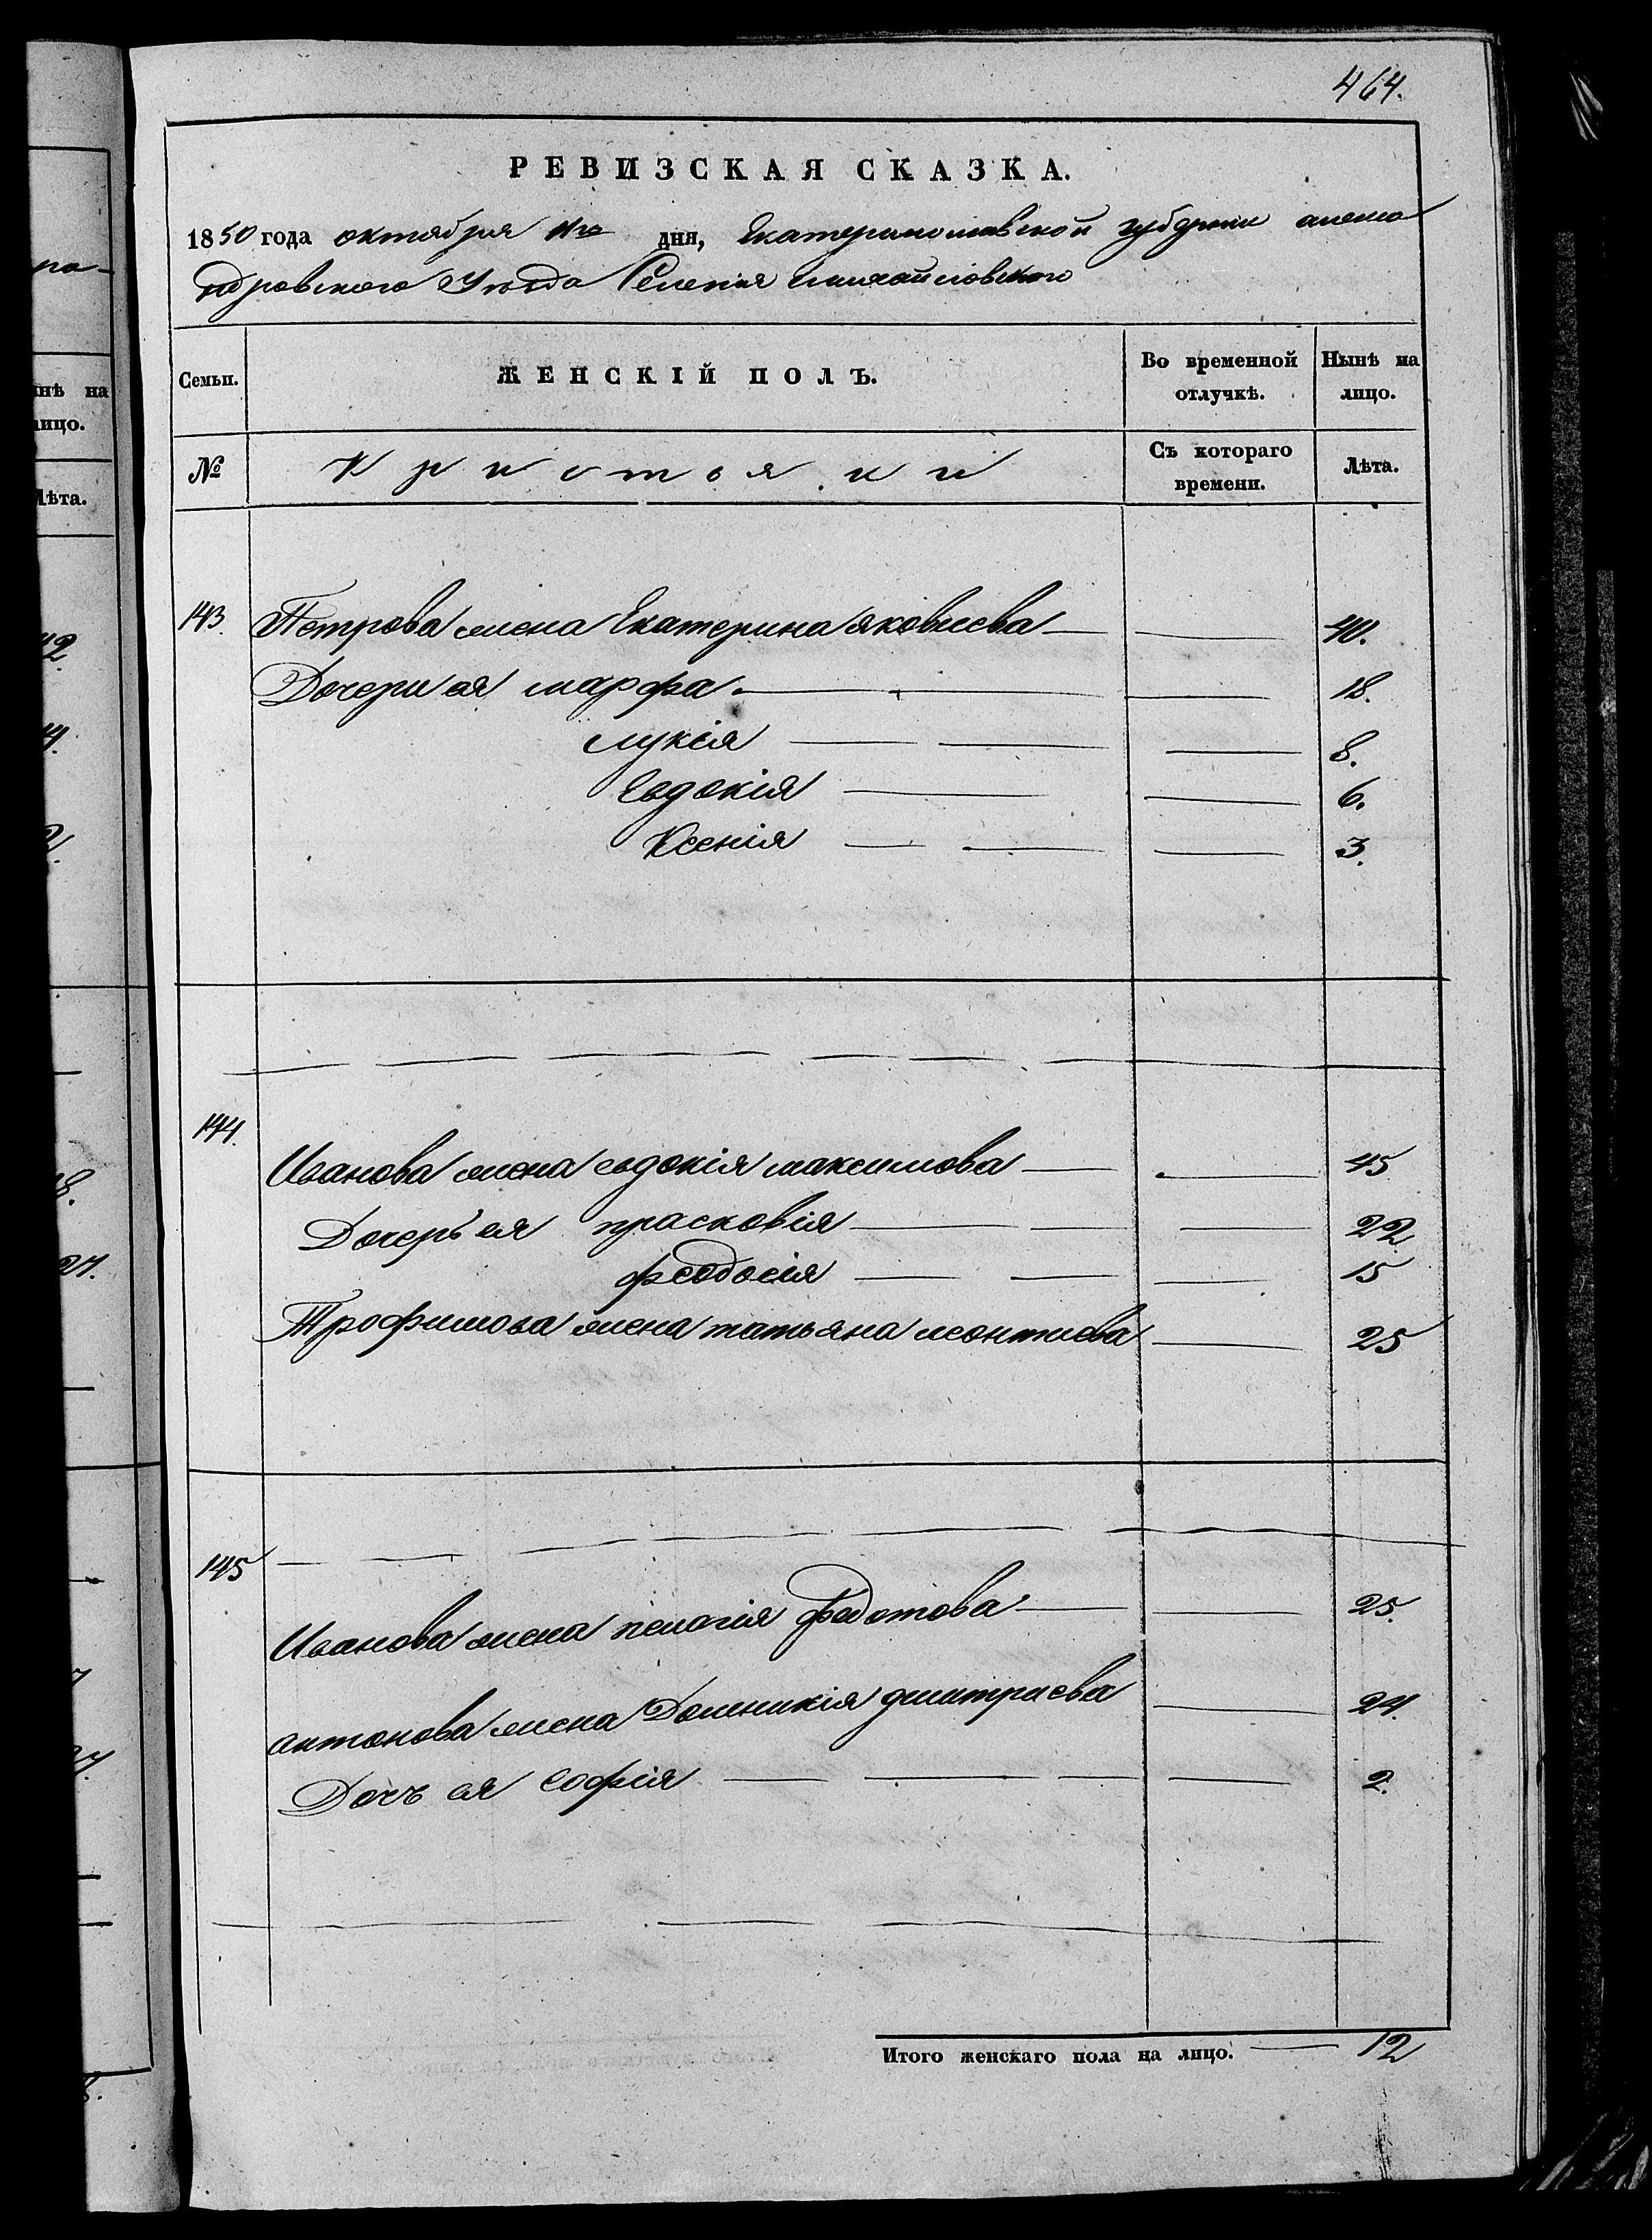 464.
РЕВИЗСКАЯ СКАЗКА.
1850 года октября 11го дня, Екатеринославской губернии алекса
ндровского Уезда Селения михайловского
Семьи. ЖЕНСКІЙ ПОЛЪ. Во временной отлучкѣ. Нынѣ на лицо.
№ Съ котораго времени. Лѣта.
143. Петрова жена Екатерина яковлева 40.
Дочери ея марфа 18.
лукія 8.
Евдокія 6.
Ксенія 3.
144. Иванова жена евдокія максимова 45
Дочерь ея прасковія 22
феодосія 15
Трофимова жена татьяна леонтиева 25
145 Иванова жена пелагія Федотова 25.
антонова жена Доменикія дмитриева 24.
Дочь ея софія 2.
Итого женскаго пола на лицо. 12